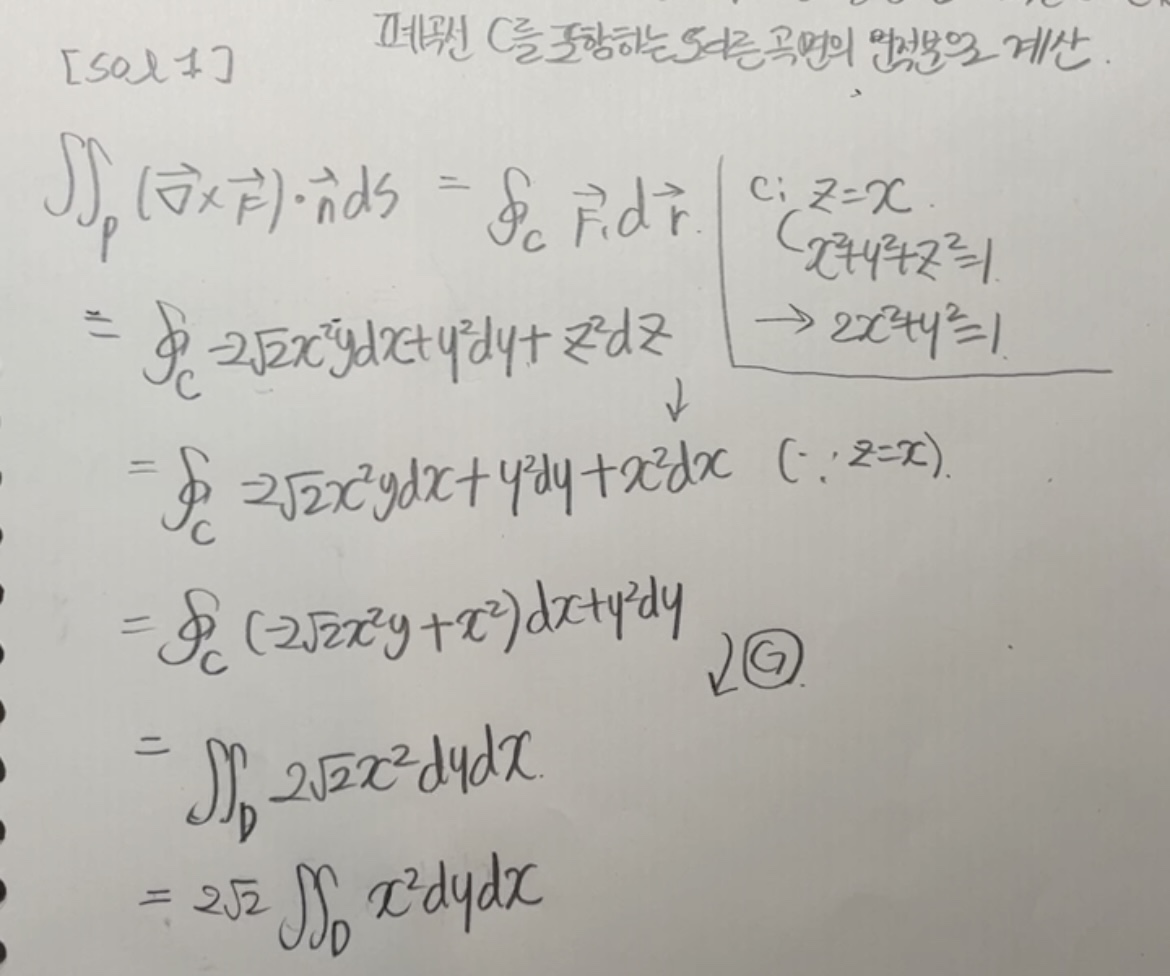 폐곡선 C를 포함하는 또다른 곡면의 면적분으로 계산.
[sol 1]
∬_P (▽⃗×F⃗)·n⃗ ds = ∮_C F⃗·dr⃗.
C: z=x.
x²+y²+z²=1.
→ 2x²+y²=1.
= ∮_C -2√2x²ydx+y²dy+z²dz
↓
= ∮_C -2√2x²ydx+y²dy+x²dx (∵ z=x).
= ∮_C (-2√2x²y+x²)dx+y²dy
↓ Ⓖ.
= ∬_D 2√2x²dydx.
= 2√2 ∬_D x²dydx